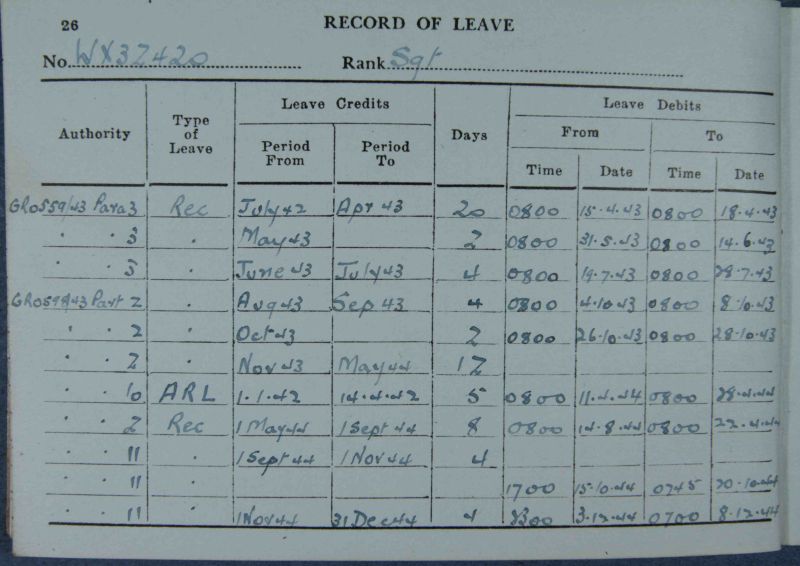 26 RECORD OF LEAVE
No. WX32420 Rank Sgt
Leave Credits Leave Debits
Authority Type of Leave Period From Period To Days From To
Time Date Time Date
GRO559/43 Para 3 Rec July 42 Apr 43 20 0800 15.4.43 0800 18.4.43
" " 3 " May 43 2 0800 31.5.43 0800 14.6.43
" " 3 " June 43 July 43 4 0800 19.7.43 0800 28.7.43
Part 2 " Aug 43 Sep 43 4 0800 4.10.43 0800 8.10.43
" " 2 " Oct 43 2 0800 26.10.43 0800 28.10.43
" " 2 " Nov 43 May 44 12
" " 10 ARL 1.1.42 14.4.42 5 0800 11.4.44 0800 28.4.44
" " 2 Rec 1 May 44 1 Sept 44 8 0800 14.8.44 0800 22.4.44
" " 11 " 1 Sept 44 1 Nov 44 4
" " 11 " 1700 15.10.44 0745 20.10.44
" " 11 1 Nov 44 31 Dec 44 4 3.12.44 0700 8.12.44